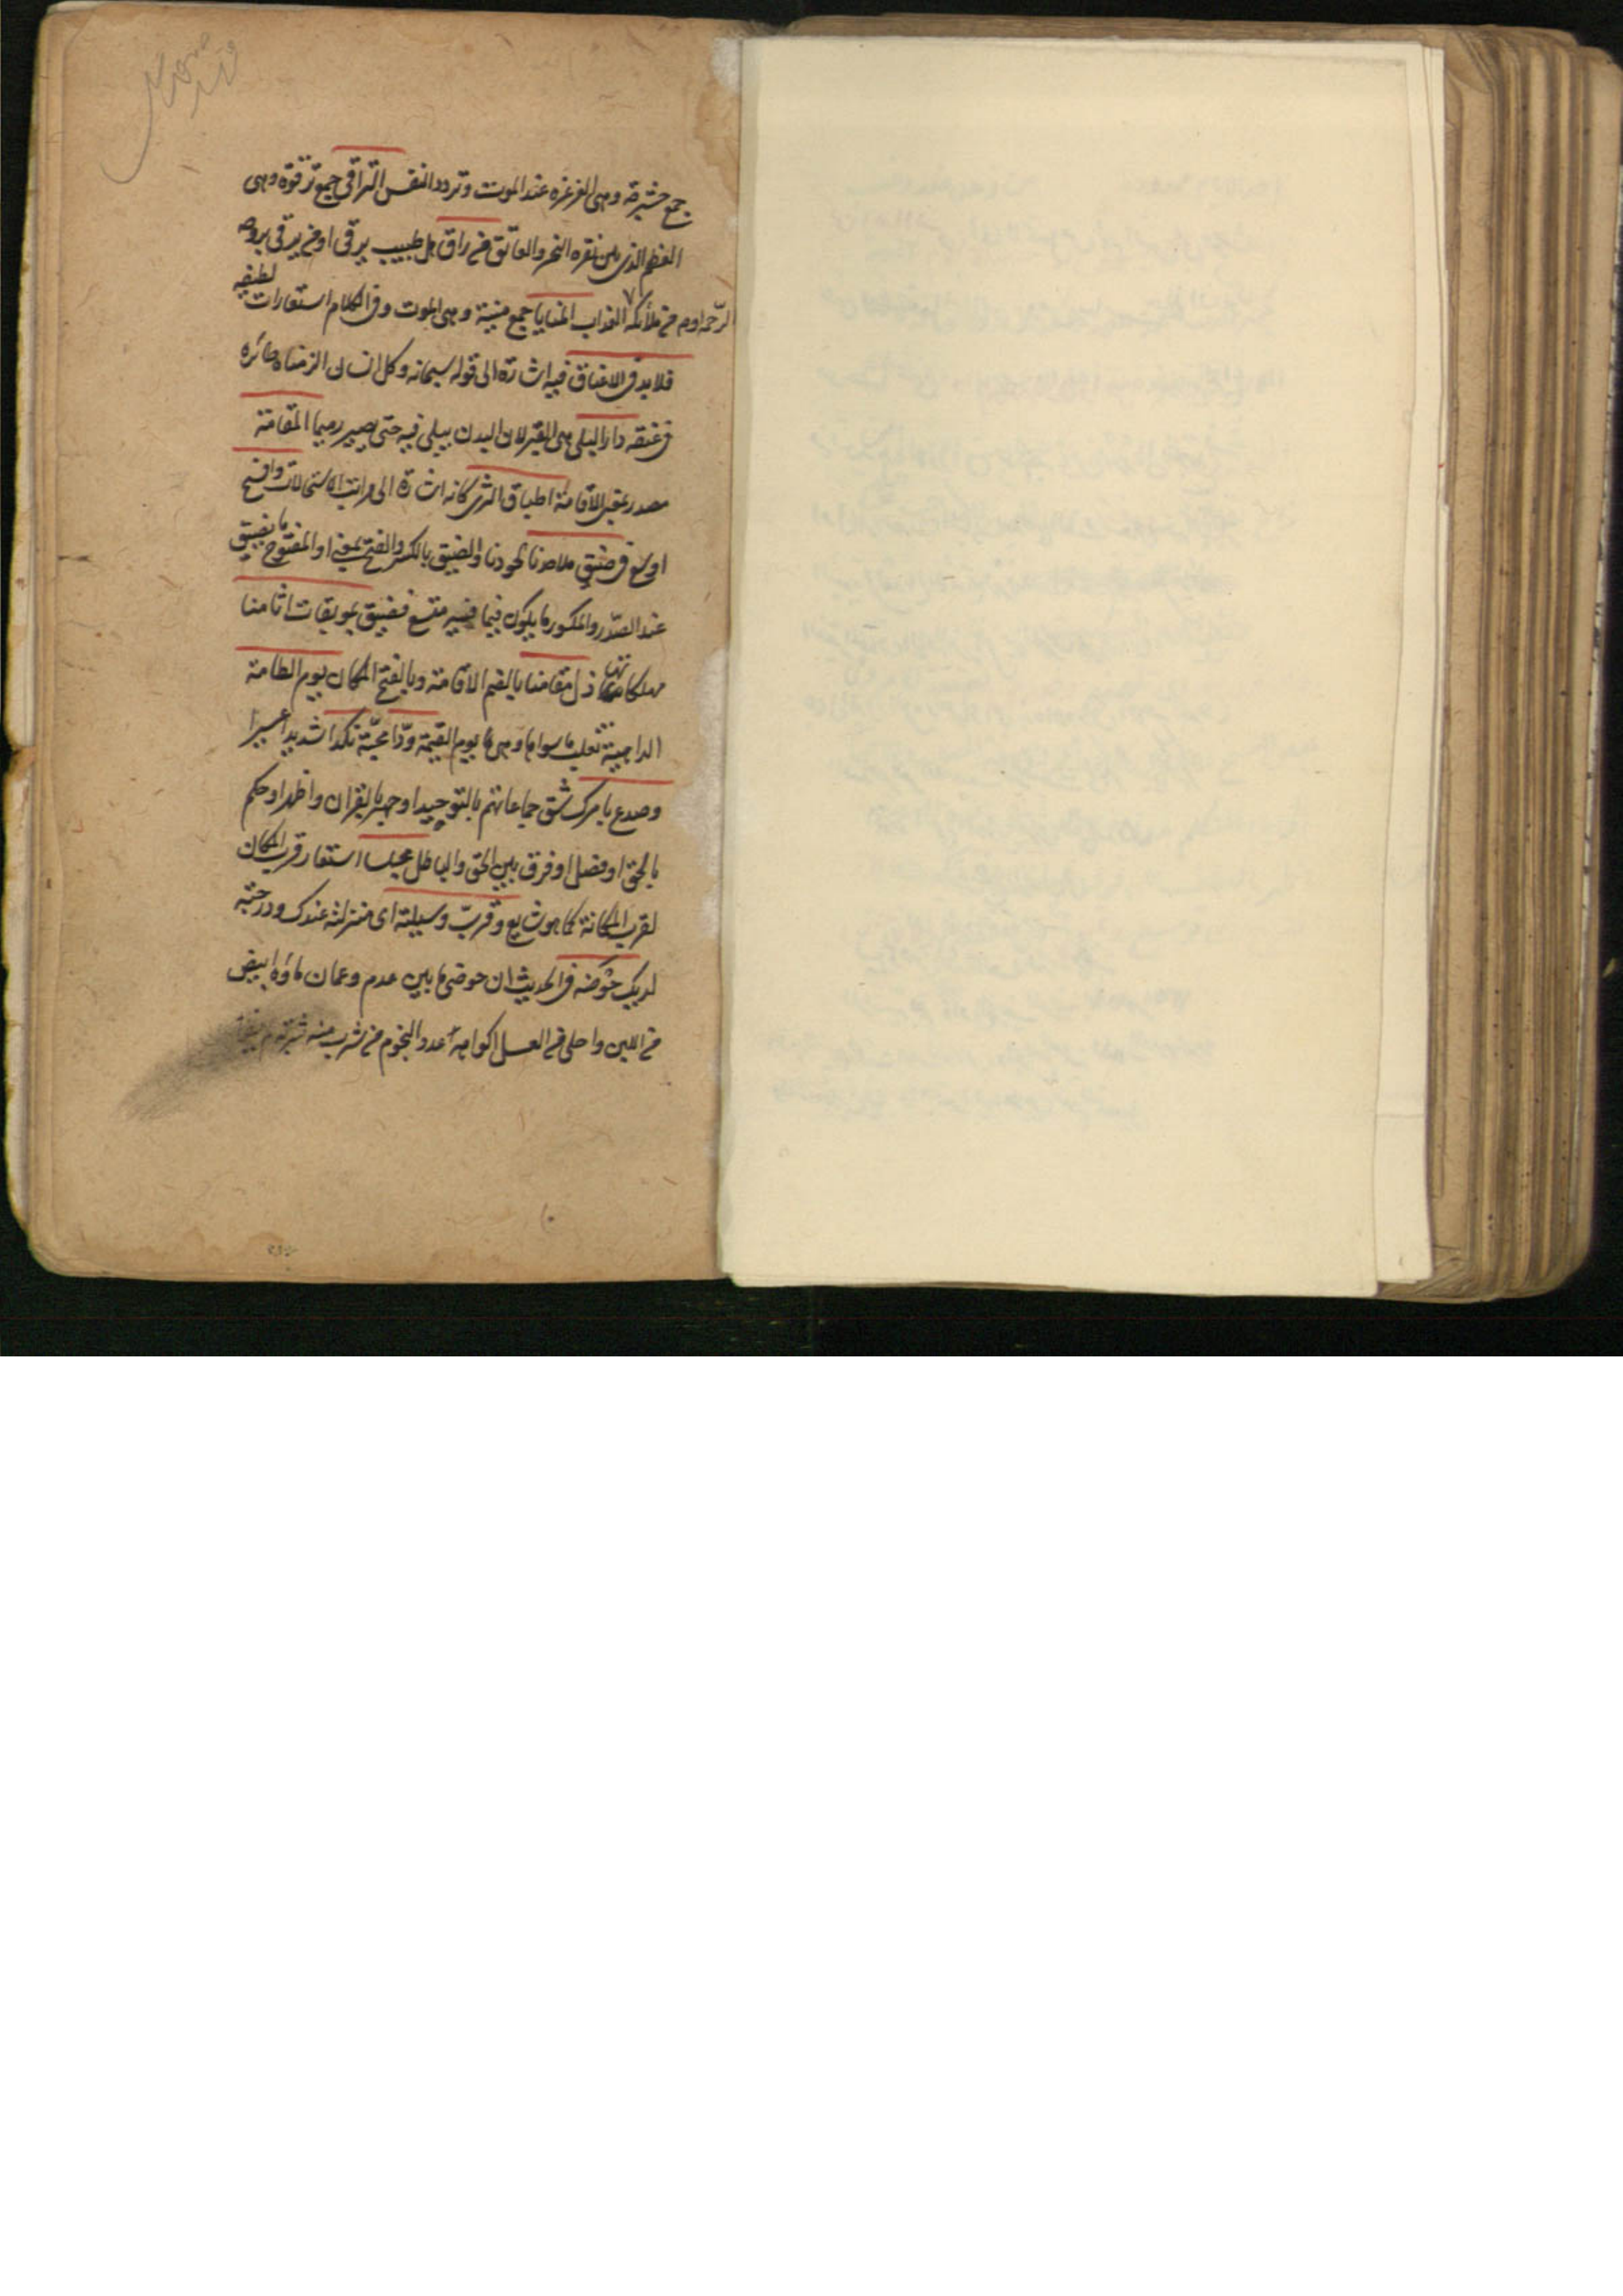 جمع حشرجة وهى الغرغره عند الموت وتردد النفس التراقى جمع ترقوة وهى
العظم الذى بين نقره النحر والعاتق من راق هل طبيب يرقى او من يرقى بروحه
الرحمة ام من ملائكة العذاب المنايا جمع منية وهى الموت وفى الكلام استعارات لطيفه
قلايد فى الاعناق فيه اشارة الى قوله سبحانه وكل انسان الزمناه طائره
فى عنقه دار البلى هى القبر لان البدن يبلى فيه حتى يصير رميما المقامة
مصدر بمعنى الاقامة اطباق الثرى كانه اشارة الى مراتب الاستحالات وافسح
اوسع فى ضيق ملاحدنا لحودنا والضيق بالكسر والفتح بمعنى او المفتوح ما يضيق
عند الصدر والمكسور ما يكون فيما فيه متسع فيضيق بموبقات اثامنا
مهلكاتها ذل مقامنا بالضم الاقامة وبالفتح المكان يوم الطامة
الداهية تغلب ما سواها وهى ها يوم القيمة ودا محبة نكدا شديدا عسيرا
وصدع بامرك شق جماعاتهم بالتوحيد او جهر بالقران واظهر او حكم
بالحق او فصل او فرق بين الحق والباطل مجلسا استعار قرب المكان
لقرب المكانة كما هو شايع وقرب وسيلته اى منزلته عندك ودرجته
لديك حوضه فى الحديث ان حوضى ما بين عدم وعمان ماؤه ابيض
من اللبن واحلى من العسل اكوابه عدد النجوم من شرب منه شربة لم